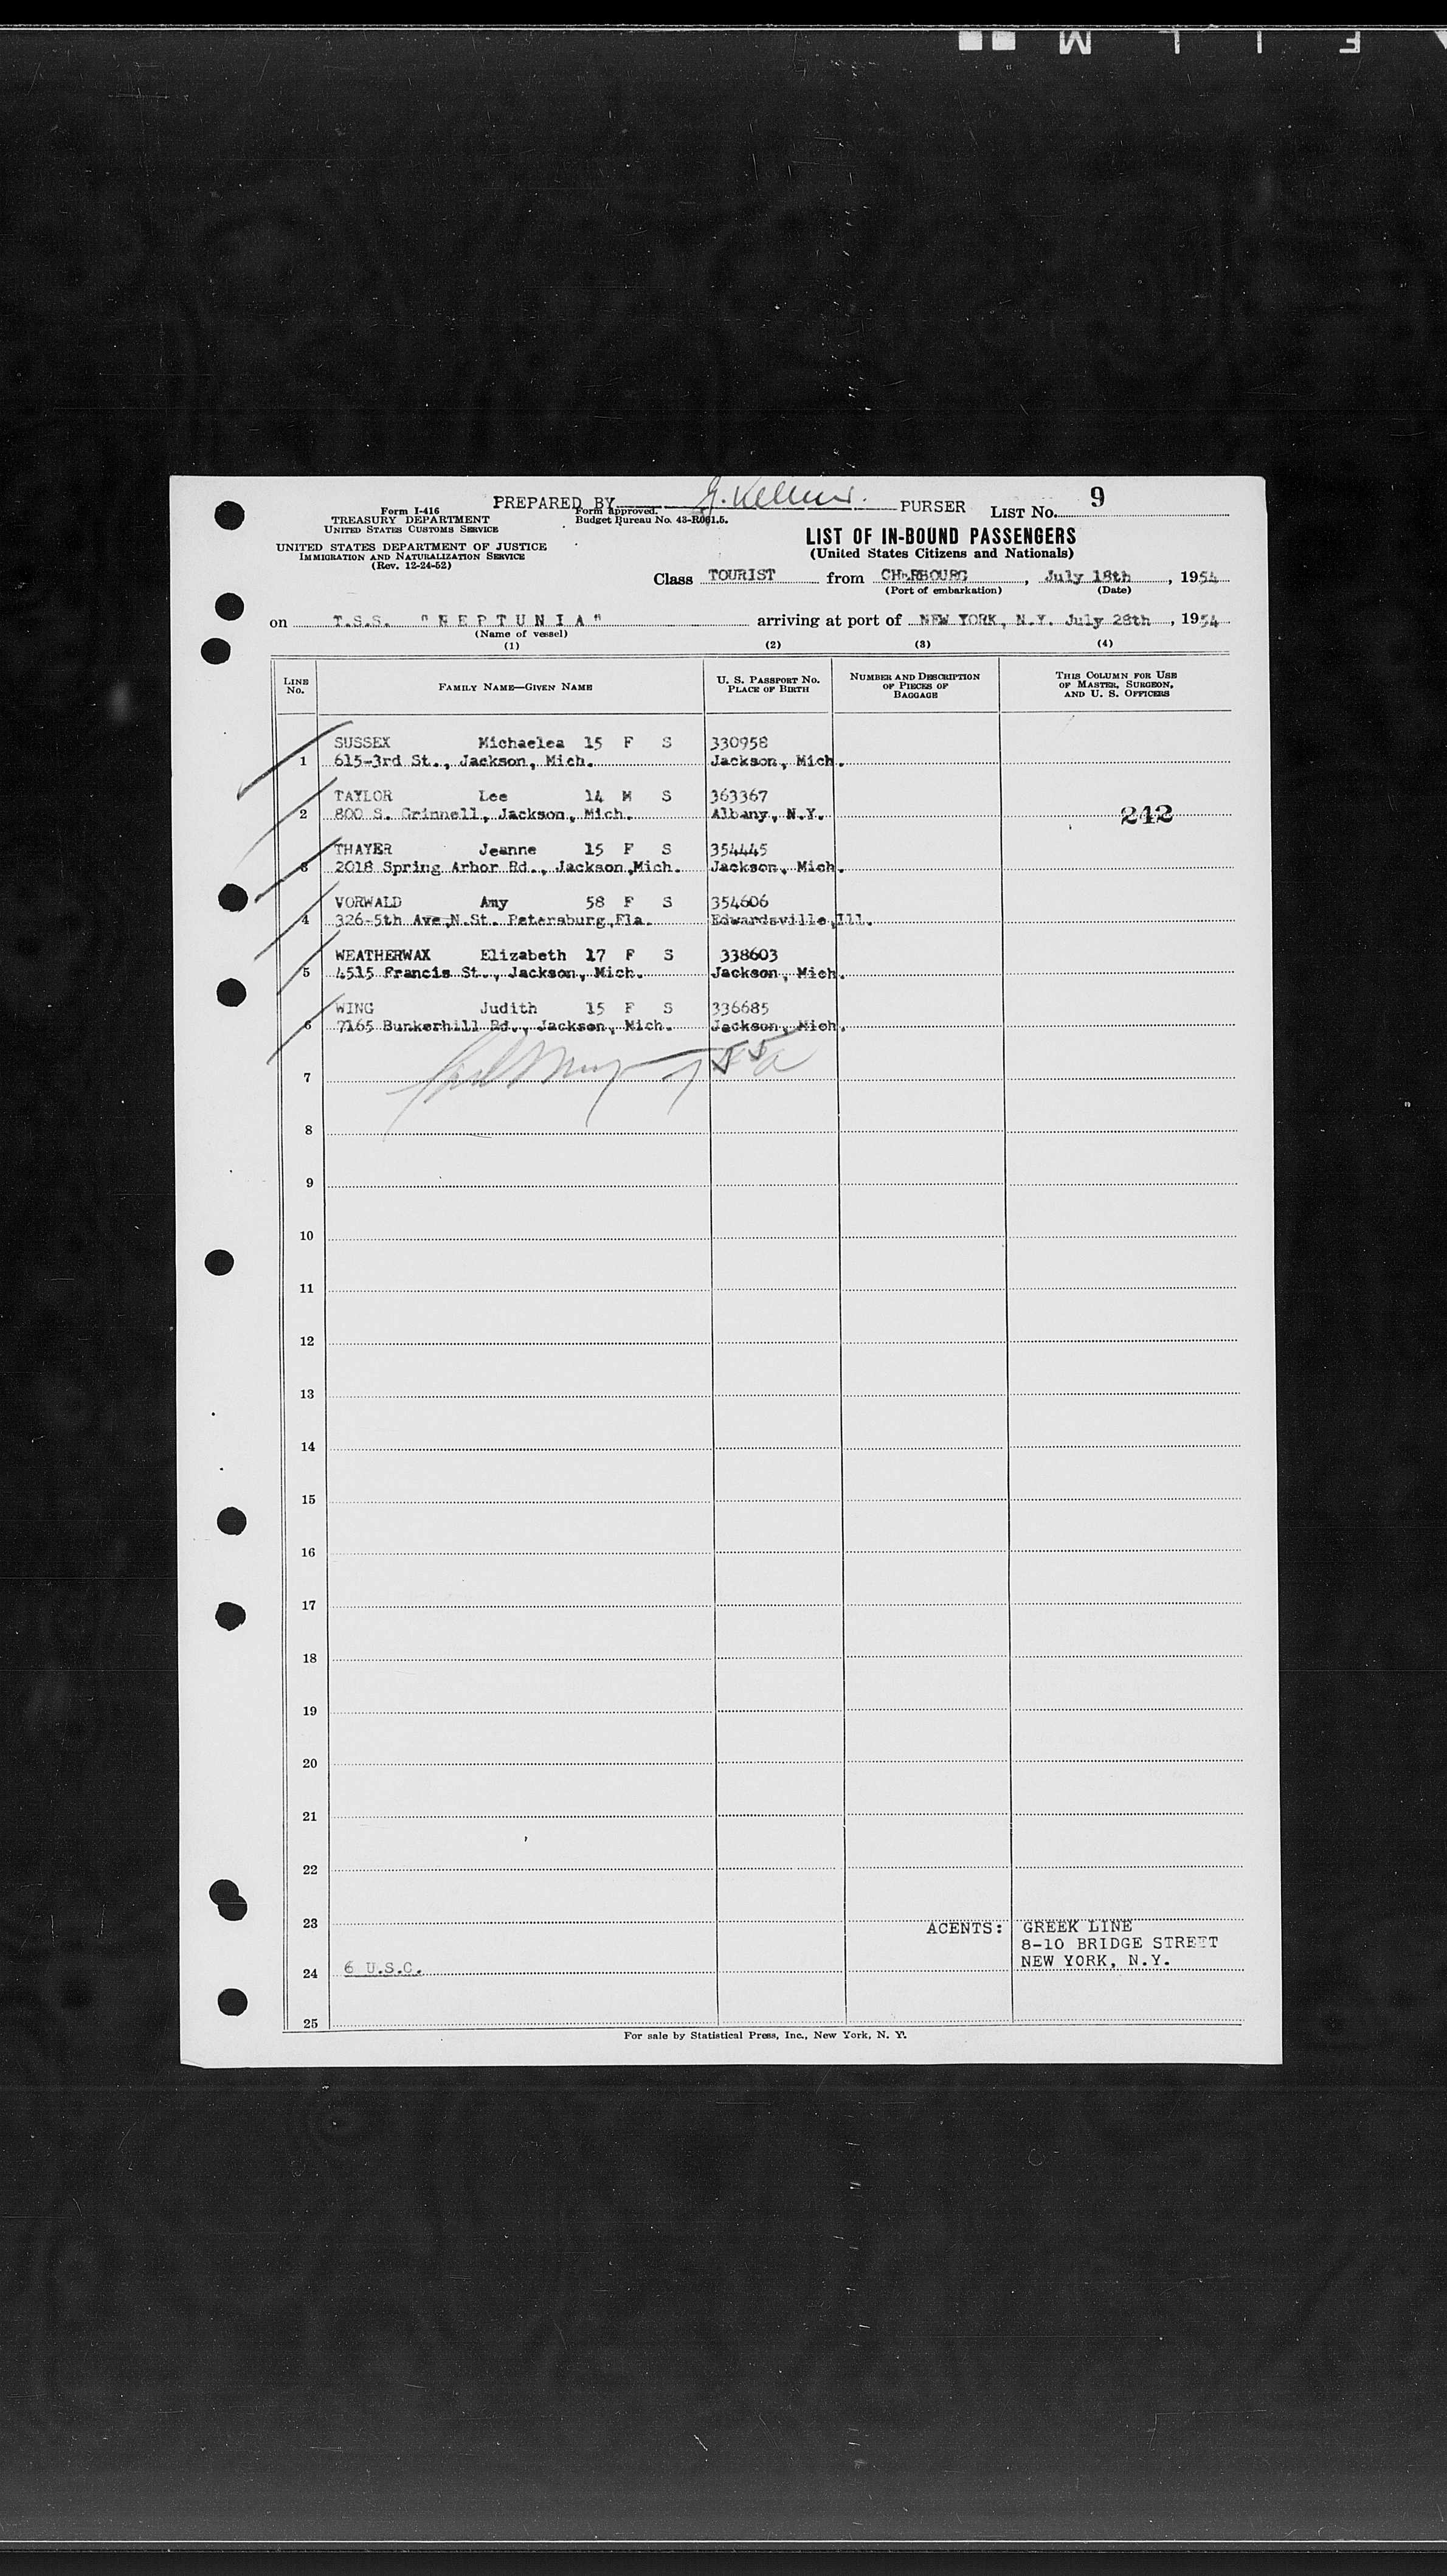 FILM
PREPARED BY G. Kellner. PURSER LIST No. 9
Form I-416
TREASURY DEPARTMENT
UNITED STATES CUSTOMS SERVICE
Form approved.
Budget Bureau No. 43-R061.5.
UNITED STATES DEPARTMENT OF JUSTICE
IMMIGRATION AND NATURALIZATION SERVICE
(Rev. 12-24-52)
LIST OF IN-BOUND PASSENGERS
(United States Citizens and Nationals)
Class TOURIST from CHERBOURG, July 18th, 1954
(Port of embarkation) (Date)
on T.S.S. "NEPTUNIA" arriving at port of NEW YORK, N.Y. July 28th, 1954
(Name of vessel)
(1) (2) (3) (4)
LINE No. FAMILY NAME—GIVEN NAME U. S. PASSPORT NO. PLACE OF BIRTH NUMBER AND DESCRIPTION OF PIECES OF BAGGAGE THIS COLUMN FOR USE OF MASTER, SURGEON, AND U. S. OFFICERS
SUSSEX Michaelea 15 F S 330958
1 615-3rd St., Jackson, Mich. Jackson, Mich.
TAYLOR Lee 14 M S 363367
2 800 S. Grinnell, Jackson, Mich. Albany, N.Y. 242
THAYER Jeanne 15 F S 354445
3 2018 Spring Arbor Rd., Jackson,Mich. Jackson, Mich.
VORWALD Amy 58 F S 354606
4 326-5th Ave,N.St. Petersburg,Fla. Edwardsville,Ill.
WEATHERWAX Elizabeth 17 F S 338603
5 4515 Francis St., Jackson, Mich. Jackson, Mich.
WING Judith 15 F S 336685
6 7165 Bunkerhill Rd., Jackson, Mich. Jackson, Mich.
7
8
9
10
11
12
13
14
15
16
17
18
19
20
21
22
23 AGENTS: GREEK LINE
8-10 BRIDGE STREET
24 6 U.S.C. NEW YORK, N.Y.
25
For sale by Statistical Press, Inc., New York, N. Y.